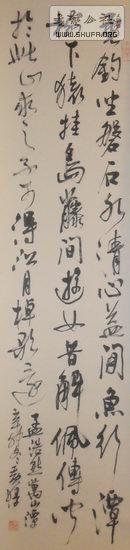 WWW.SHUFA.ORG
垂釣坐磐石水清心益閒魚行潭
樹下猿挂島藤間遊女昔解佩傳聞
於此山求之不可得沿月棹歌還
孟浩然萬山潭